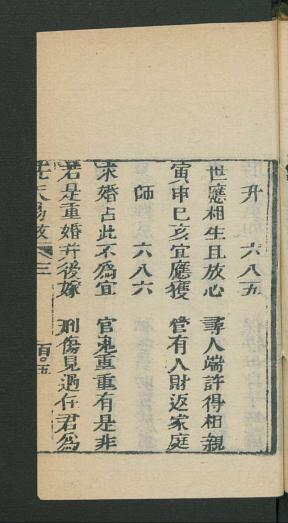 升　六八五
世應相生且放心　尋人端許得相親
寅申巳亥宜應獲　管有人財返家庭
師　六八六
求婚占此不為宜　官鬼重重有是非
若是重婚并後嫁　刑傷見過任君為
先天易数　三　百〇五